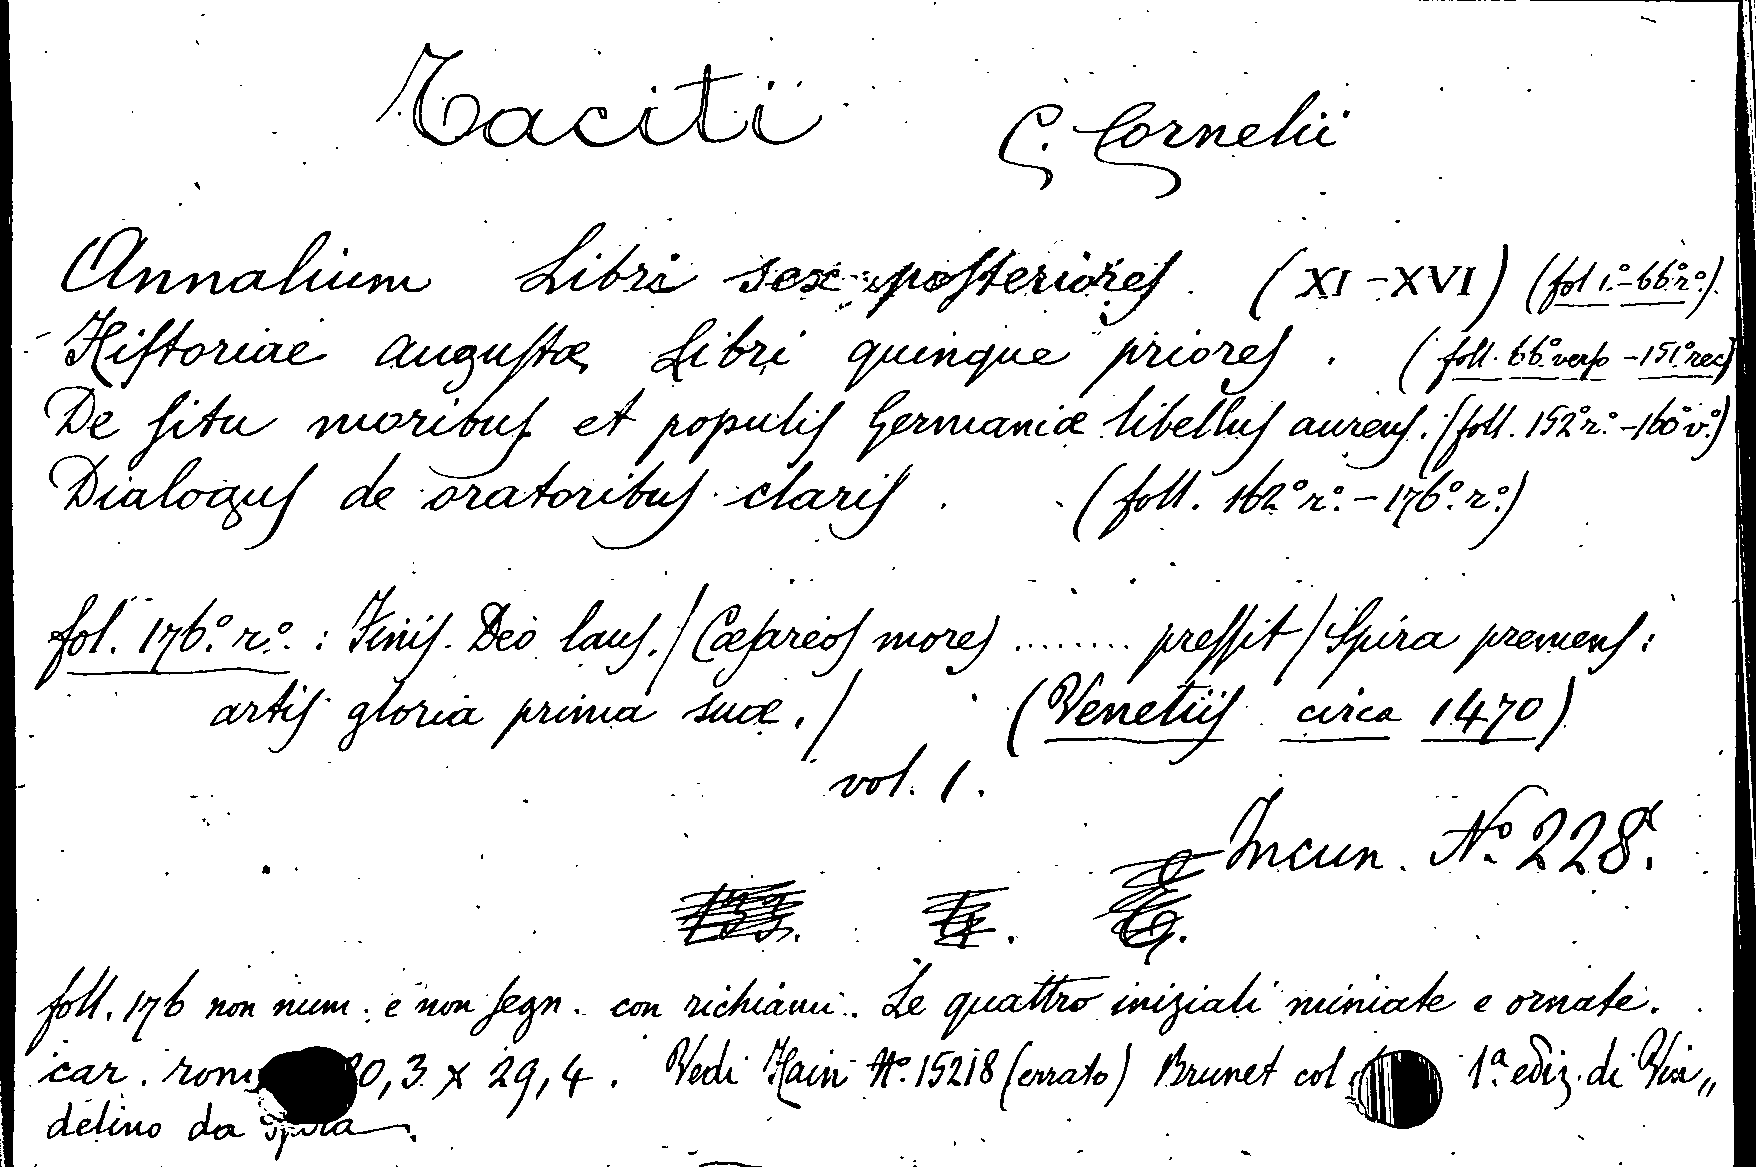 Taciti C. Cornelii
Annalium Libri sex posteriores (XI-XVI) (fol 1.º-66º.r.º).
Historiae augustæ Libri quinque priores. (foll. 66º.verso-151º.rec)
De situ moribus et populis Germaniæ libellus aureus. (foll. 152º r.º-160º v.º)
Dialogus de oratoribus claris. (foll. 162º r.º-176º.r.º)
fol. 176.º r.º: Finis. Deo laus./Cæsareos mores ........ pressit/Spira premens:
artis gloria prima suæ./ (Venetiis circa 1470)
vol. 1.
Incun. Nº. 228.
foll. 176 non num. e non segn. con richiami. Le quattro iniziali miniate e ornate.
car. 0,3 x 29,4. Vedi Hain Nº. 15218 (errato) Brunet col 1ª. ediz. di Vin„
delino da Spira.